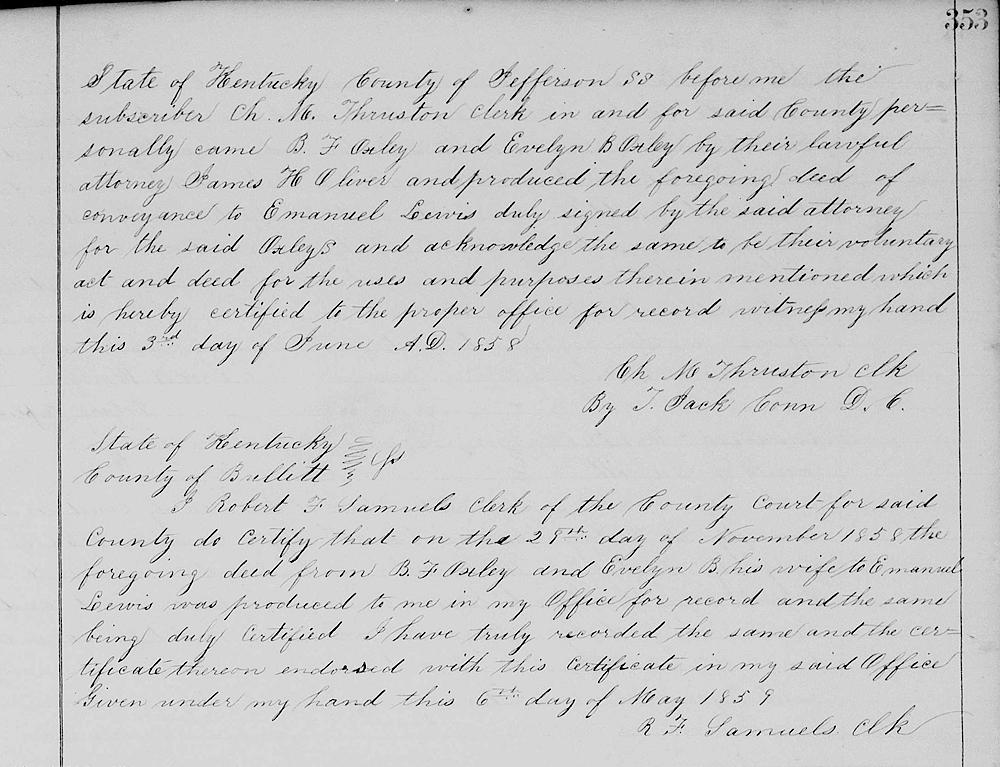 353
State of Kentucky County of Jefferson SS before me the
subscriber Ch. M. Thruston Clerk in and for said County per=
sonally came B. F Oxley and Evelyn B Oxley by their lawful
attorney James H Oliver and produced the foregoing deed of
conveyance to Emanuel Lewis duly signed by the said attorney
for the said Oxleys and acknowledge the same to be their voluntary
act and deed for the uses and purposes therein mentioned which
is hereby certified to the proper office for record witness my hand
this 3rd day of June A.D. 1858
Ch M Thruston clk
By T. Jack Conn D. C.
State of Kentucky
County of Bullitt } Ss
I Robert F Samuels Clerk of the County Court for said
County do Certify that on the 29th day of November 1858 the
foregoing deed from B. F Oxley and Evelyn B. his wife to Emanuel
Lewis was produced to me in my Office for record and the same
being duly Certified I have truly recorded the same and the cer=
tificate thereon endorsed with this Certificate in my said Office
Given under my hand this 6th day of May 1859
R F. Samuels Clk